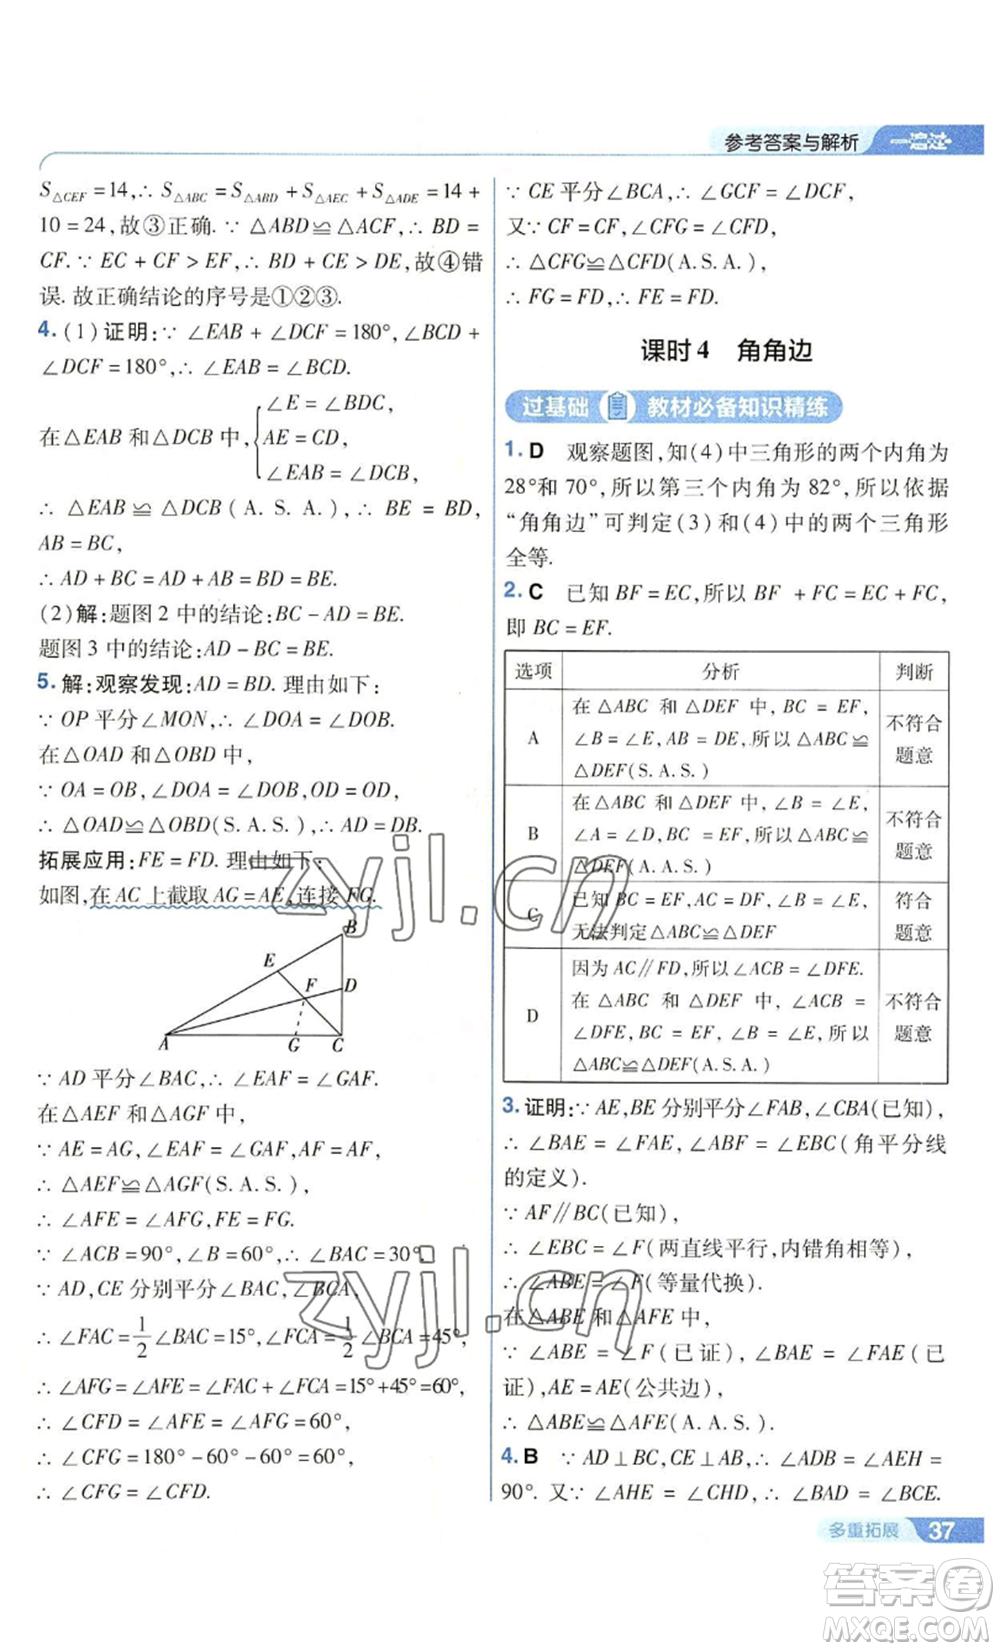 参考答案与解析 一遍过
S△CEF=14,∴ S△ABC=S△ABD+S△AEC+S△ADE=14+
10=24,故③正确.∵ △ABD≌△ACF,∴ BD=
CF.∵ EC+CF>EF,∴ BD+CE>DE,故④错
误.故正确结论的序号是①②③.
4. (1)证明:∵ ∠EAB+∠DCF=180°,∠BCD+
∠DCF=180°,∴ ∠EAB=∠BCD.
∠E=∠BDC,
在△EAB 和△DCB 中, AE=CD,
∠EAB=∠DCB,
∴ △EAB≌△DCB(A.S.A.),∴ BE=BD,
AB=BC,
∴ AD+BC=AD+AB=BD=BE.
(2)解:题图 2 中的结论:BC-AD=BE.
题图 3 中的结论:AD-BC=BE.
5. 解:观察发现:AD=BD.理由如下:
∵ OP 平分∠MON,∴ ∠DOA=∠DOB.
在△OAD 和△OBD 中,
∵ OA=OB,∠DOA=∠DOB,OD=OD,
∴ △OAD≌△OBD(S.A.S.),∴ AD=DB.
拓展应用:FE=FD.理由如下:
如图,在 AC 上截取 AG=AE,连接 FG.
B
E
F D
A G C
∵ AD 平分∠BAC,∴ ∠EAF=∠GAF.
在△AEF 和△AGF 中,
∵ AE=AG,∠EAF=∠GAF,AF=AF,
∴ △AEF≌△AGF(S.A.S.),
∴ ∠AFE=∠AFG,FE=FG.
∵ ∠ACB=90°,∠B=60°,∴ ∠BAC=30°.
∵ AD,CE 分别平分∠BAC,∠BCA,
∴ ∠FAC=1/2∠BAC=15°,∠FCA=1/2∠BCA=45°,
∴ ∠AFG=∠AFE=∠FAC+∠FCA=15°+45°=60°,
∴ ∠CFD=∠AFE=∠AFG=60°,
∴ ∠CFG=180°-60°-60°=60°,
∴ ∠CFG=∠CFD.
∵ CE 平分∠BCA,∴ ∠GCF=∠DCF,
又∵ CF=CF,∠CFG=∠CFD,
∴ △CFG≌△CFD(A.S.A.),
∴ FG=FD,∴ FE=FD.
课时 4 角角边
过基础 教材必备知识精练
1. D 观察题图,知(4)中三角形的两个内角为
28°和 70°,所以第三个内角为 82°,所以依据
“角角边”可判定(3)和(4)中的两个三角形
全等.
2. C 已知 BF=EC,所以 BF+FC=EC+FC,
即 BC=EF.
选项 分析 判断
A 在△ABC 和△DEF 中,BC=EF,∠B=∠E,AB=DE,所以△ABC≌△DEF(S.A.S.) 不符合题意
B 在△ABC 和△DEF 中,∠B=∠E,∠A=∠D,BC=EF,所以△ABC≌△DEF(A.A.S.) 不符合题意
C 已知 BC=EF,AC=DF,∠B=∠E,无法判定△ABC≌△DEF 符合题意
D 因为 AC∥FD,所以∠ACB=∠DFE.在△ABC 和△DEF 中,∠ACB=∠DFE,BC=EF,∠B=∠E,所以△ABC≌△DEF(A.S.A.) 不符合题意
3. 证明:∵ AE,BE 分别平分∠FAB,∠CBA(已知),
∴ ∠BAE=∠FAE,∠ABF=∠EBC(角平分线
的定义).
∵ AF∥BC(已知),
∴ ∠EBC=∠F(两直线平行,内错角相等),
∴ ∠ABE=∠F(等量代换).
在△ABE 和△AFE 中,
∵ ∠ABE=∠F(已证),∠BAE=∠FAE(已
证),AE=AE(公共边),
∴ △ABE≌△AFE(A.A.S.).
4. B ∵ AD⊥BC,CE⊥AB,∴ ∠ADB=∠AEH=
90°.又∵ ∠AHE=∠CHD,∴ ∠BAD=∠BCE.
多重拓展 37
zyjl.cn
zyjl.cn
答案圈
MXQE.COM